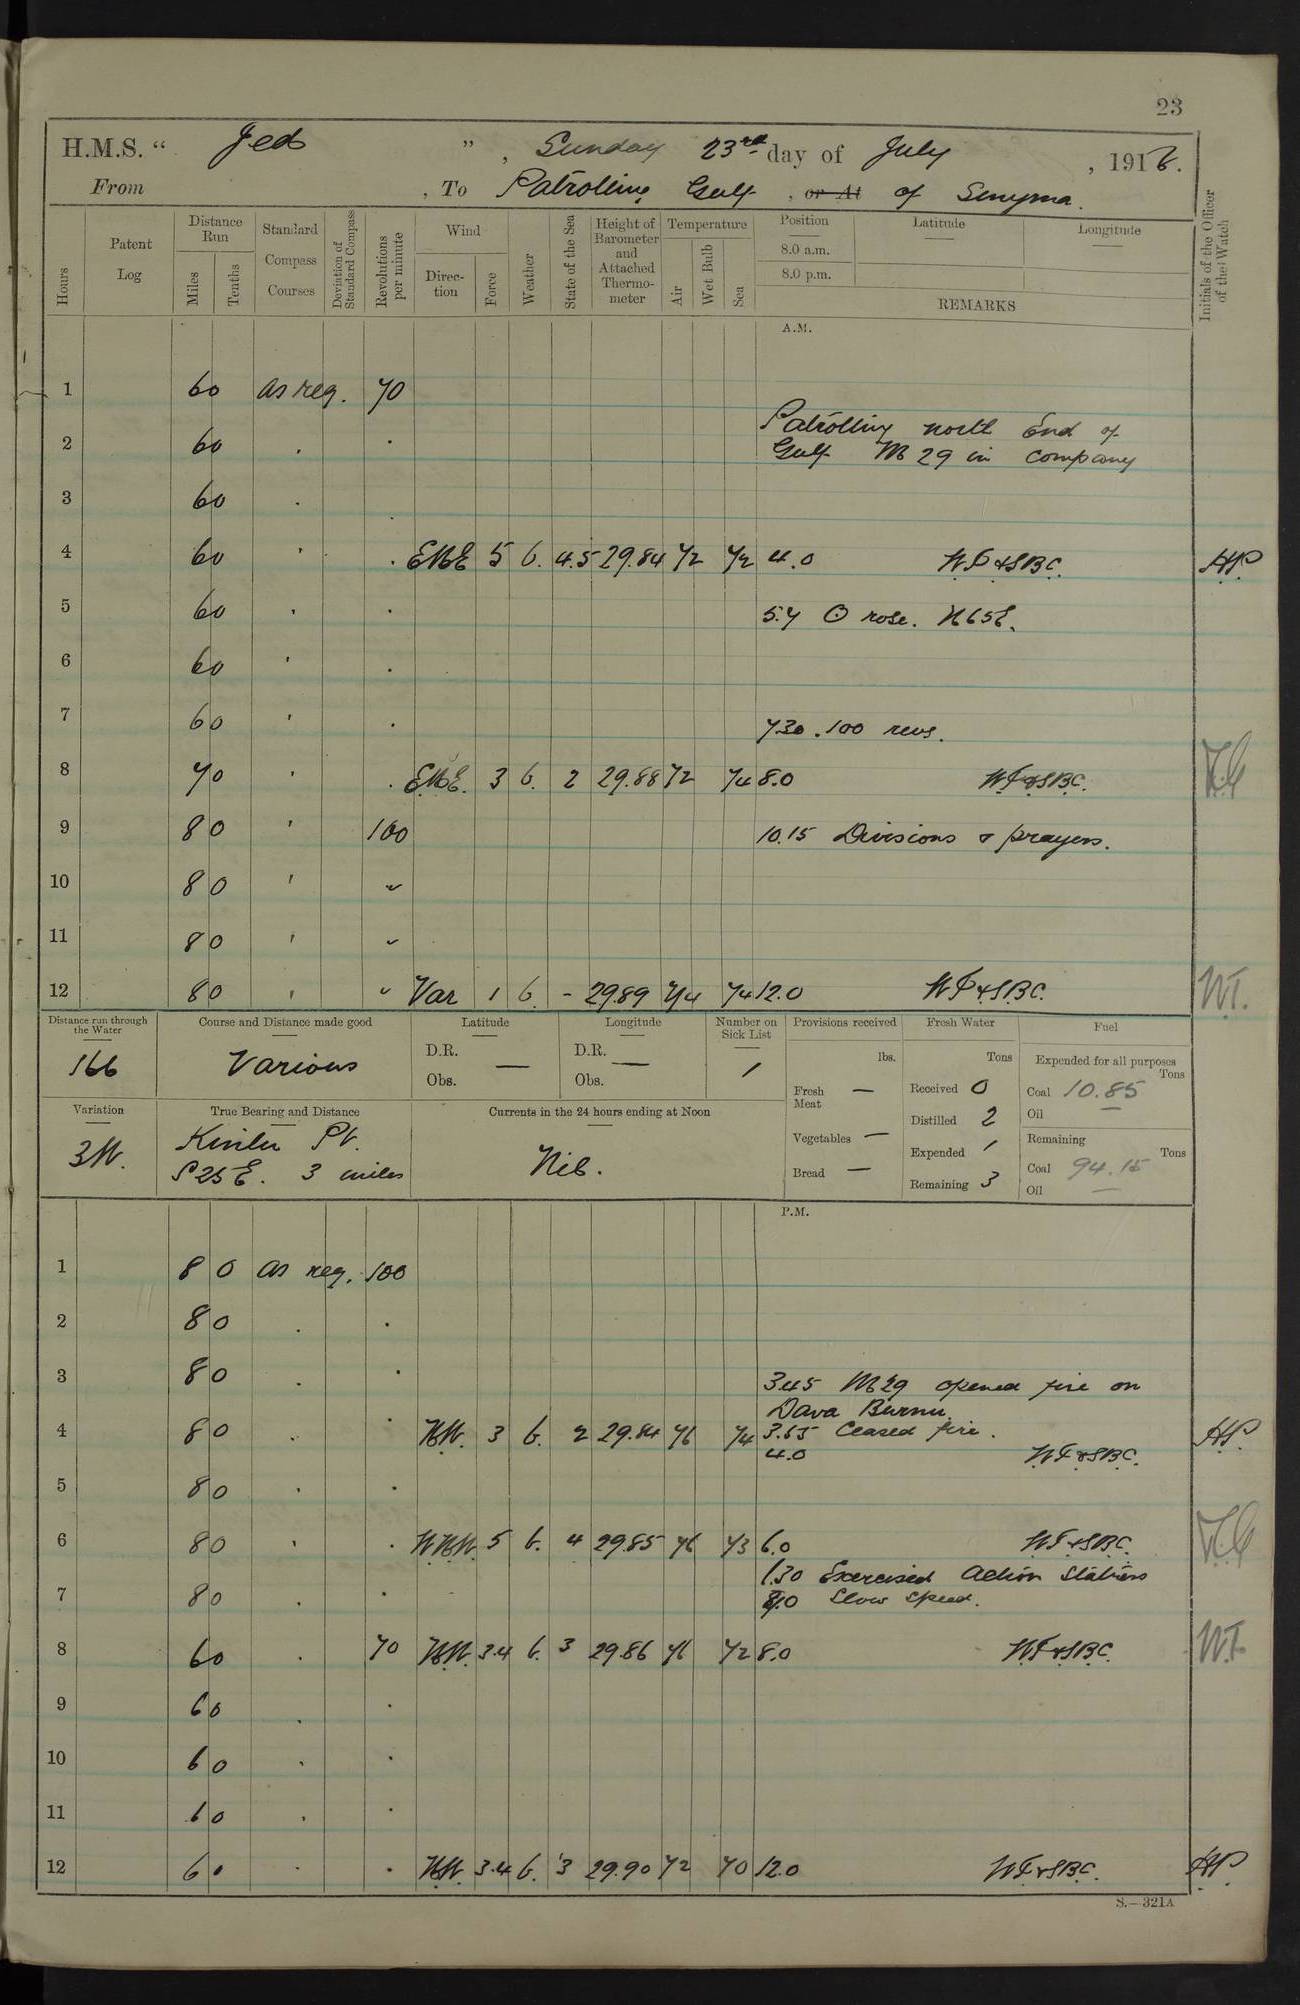 23
H.M.S. " Jed " , Sunday 23rd day of July , 1916.
From , To Patrolling Gulf , or At of Smyrna.
Hours
Patent Log
Distance Run
Miles
Tenths
Standard Compass Courses
Deviation of Standard Compass
Revolutions per minute
Wind
Direction
Force
Weather
State of the Sea
Height of Barometer and Attached Thermometer
Temperature
Air
Wet Bulb
Sea
Position
8.0 a.m.
8.0 p.m.
Latitude
Longitude
REMARKS
Initials of the Officer of the Watch
A.M.
1 6 0 as req. 70
Patrolling north End of
2 6 0 . . Gulf M 29 in company
3 6 0 . .
4 6 0 ' . 5 b. 4.5 29.84 72 72 4.0 W.F.&S.B.C. HP
5 6 0 ' . 5.7 ⊙ rose. N65E.
6 6 0 ' .
7 6 0 ' . 7.30 . 100 revs.
8 7 0 ' . 3 b. 2 29.88 72 74 8.0 W.F.&S.B.C.
9 8 0 ' 100 10.15 Divisions & prayers.
10 8 0 ' "
11 8 0 ' "
12 8 0 ' " Var 1 b. - 29.89 74 74 12.0 W.F.&S.B.C. W.T.
Distance run through the Water
166
Course and Distance made good
Various
Latitude
D.R.
Obs. —
Longitude
D.R. —
Obs.
Number on Sick List
1
Provisions received
lbs.
Fresh Meat —
Vegetables —
Bread —
Fresh Water
Tons
Received 0
Distilled 2
Expended 1
Remaining 3
Fuel
Expended for all purposes
Tons
Coal 10.85
Oil —
Remaining
Tons
Coal 94.15
Oil —
Variation
3W.
True Bearing and Distance
Pt.
S25E. 3 miles
Currents in the 24 hours ending at Noon
Nil.
P.M.
1 8 0 as req. 100
2 8 0 . .
3 8 0 . . 3.45 M29 opened fire on
Dava Burnu
4 8 0 . . N.W. 3 b. 2 29.84 76 74 3.55 Ceased fire. HP.
4.0 W.F.&S.B.C.
5 8 0 . .
6 8 0 . . W.N.W. 5 b. 4 29.85 76 73 6.0 W.F.&S.B.C.
.30 Exercised Action Stations
7 8 0 . . Slow speed.
8 6 0 . 70 N.W. 3.4 b. 3 29.86 76 72 8.0 W.F.&S.B.C. W.T.
9 6 0 . .
10 6 0 . .
11 6 0 . .
12 6 0 . . N.W. 3.4 b. 3 29.90 72 70 12.0 W.F.&S.B.C. HP
S.—321A